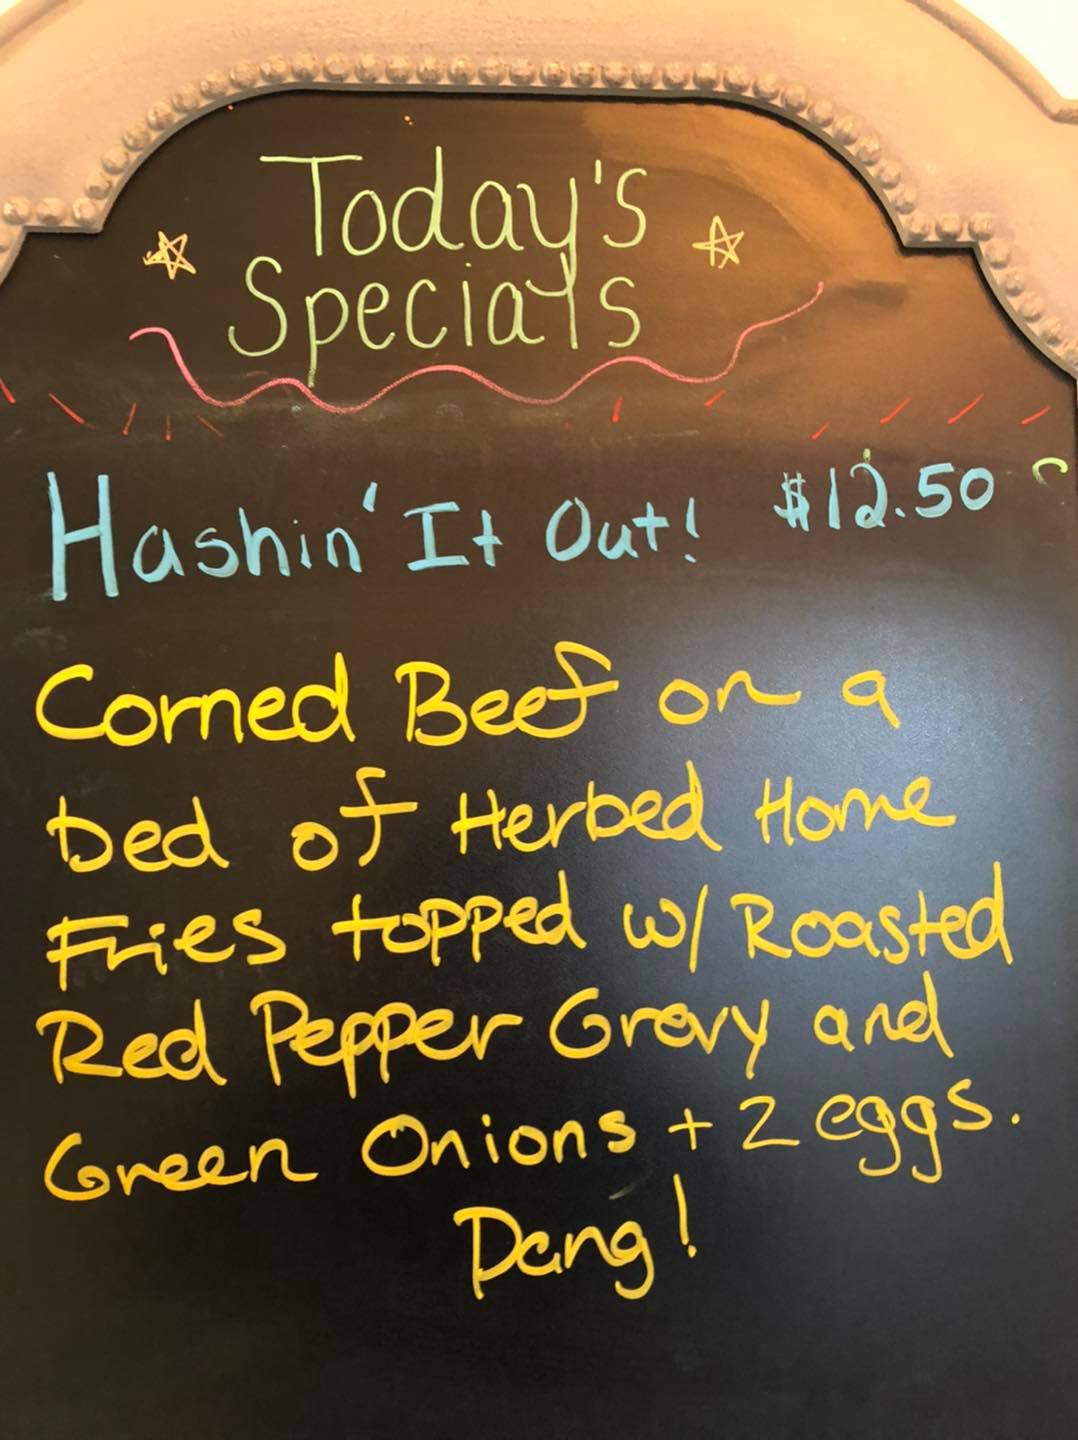 Today's
Specials
Hashin' It Out! $12.50
Corned Beef on a
bed of Herbed Home
Fries topped w/ Roasted
Red Pepper Gravy and
Green Onions + 2 eggs.
Dang!